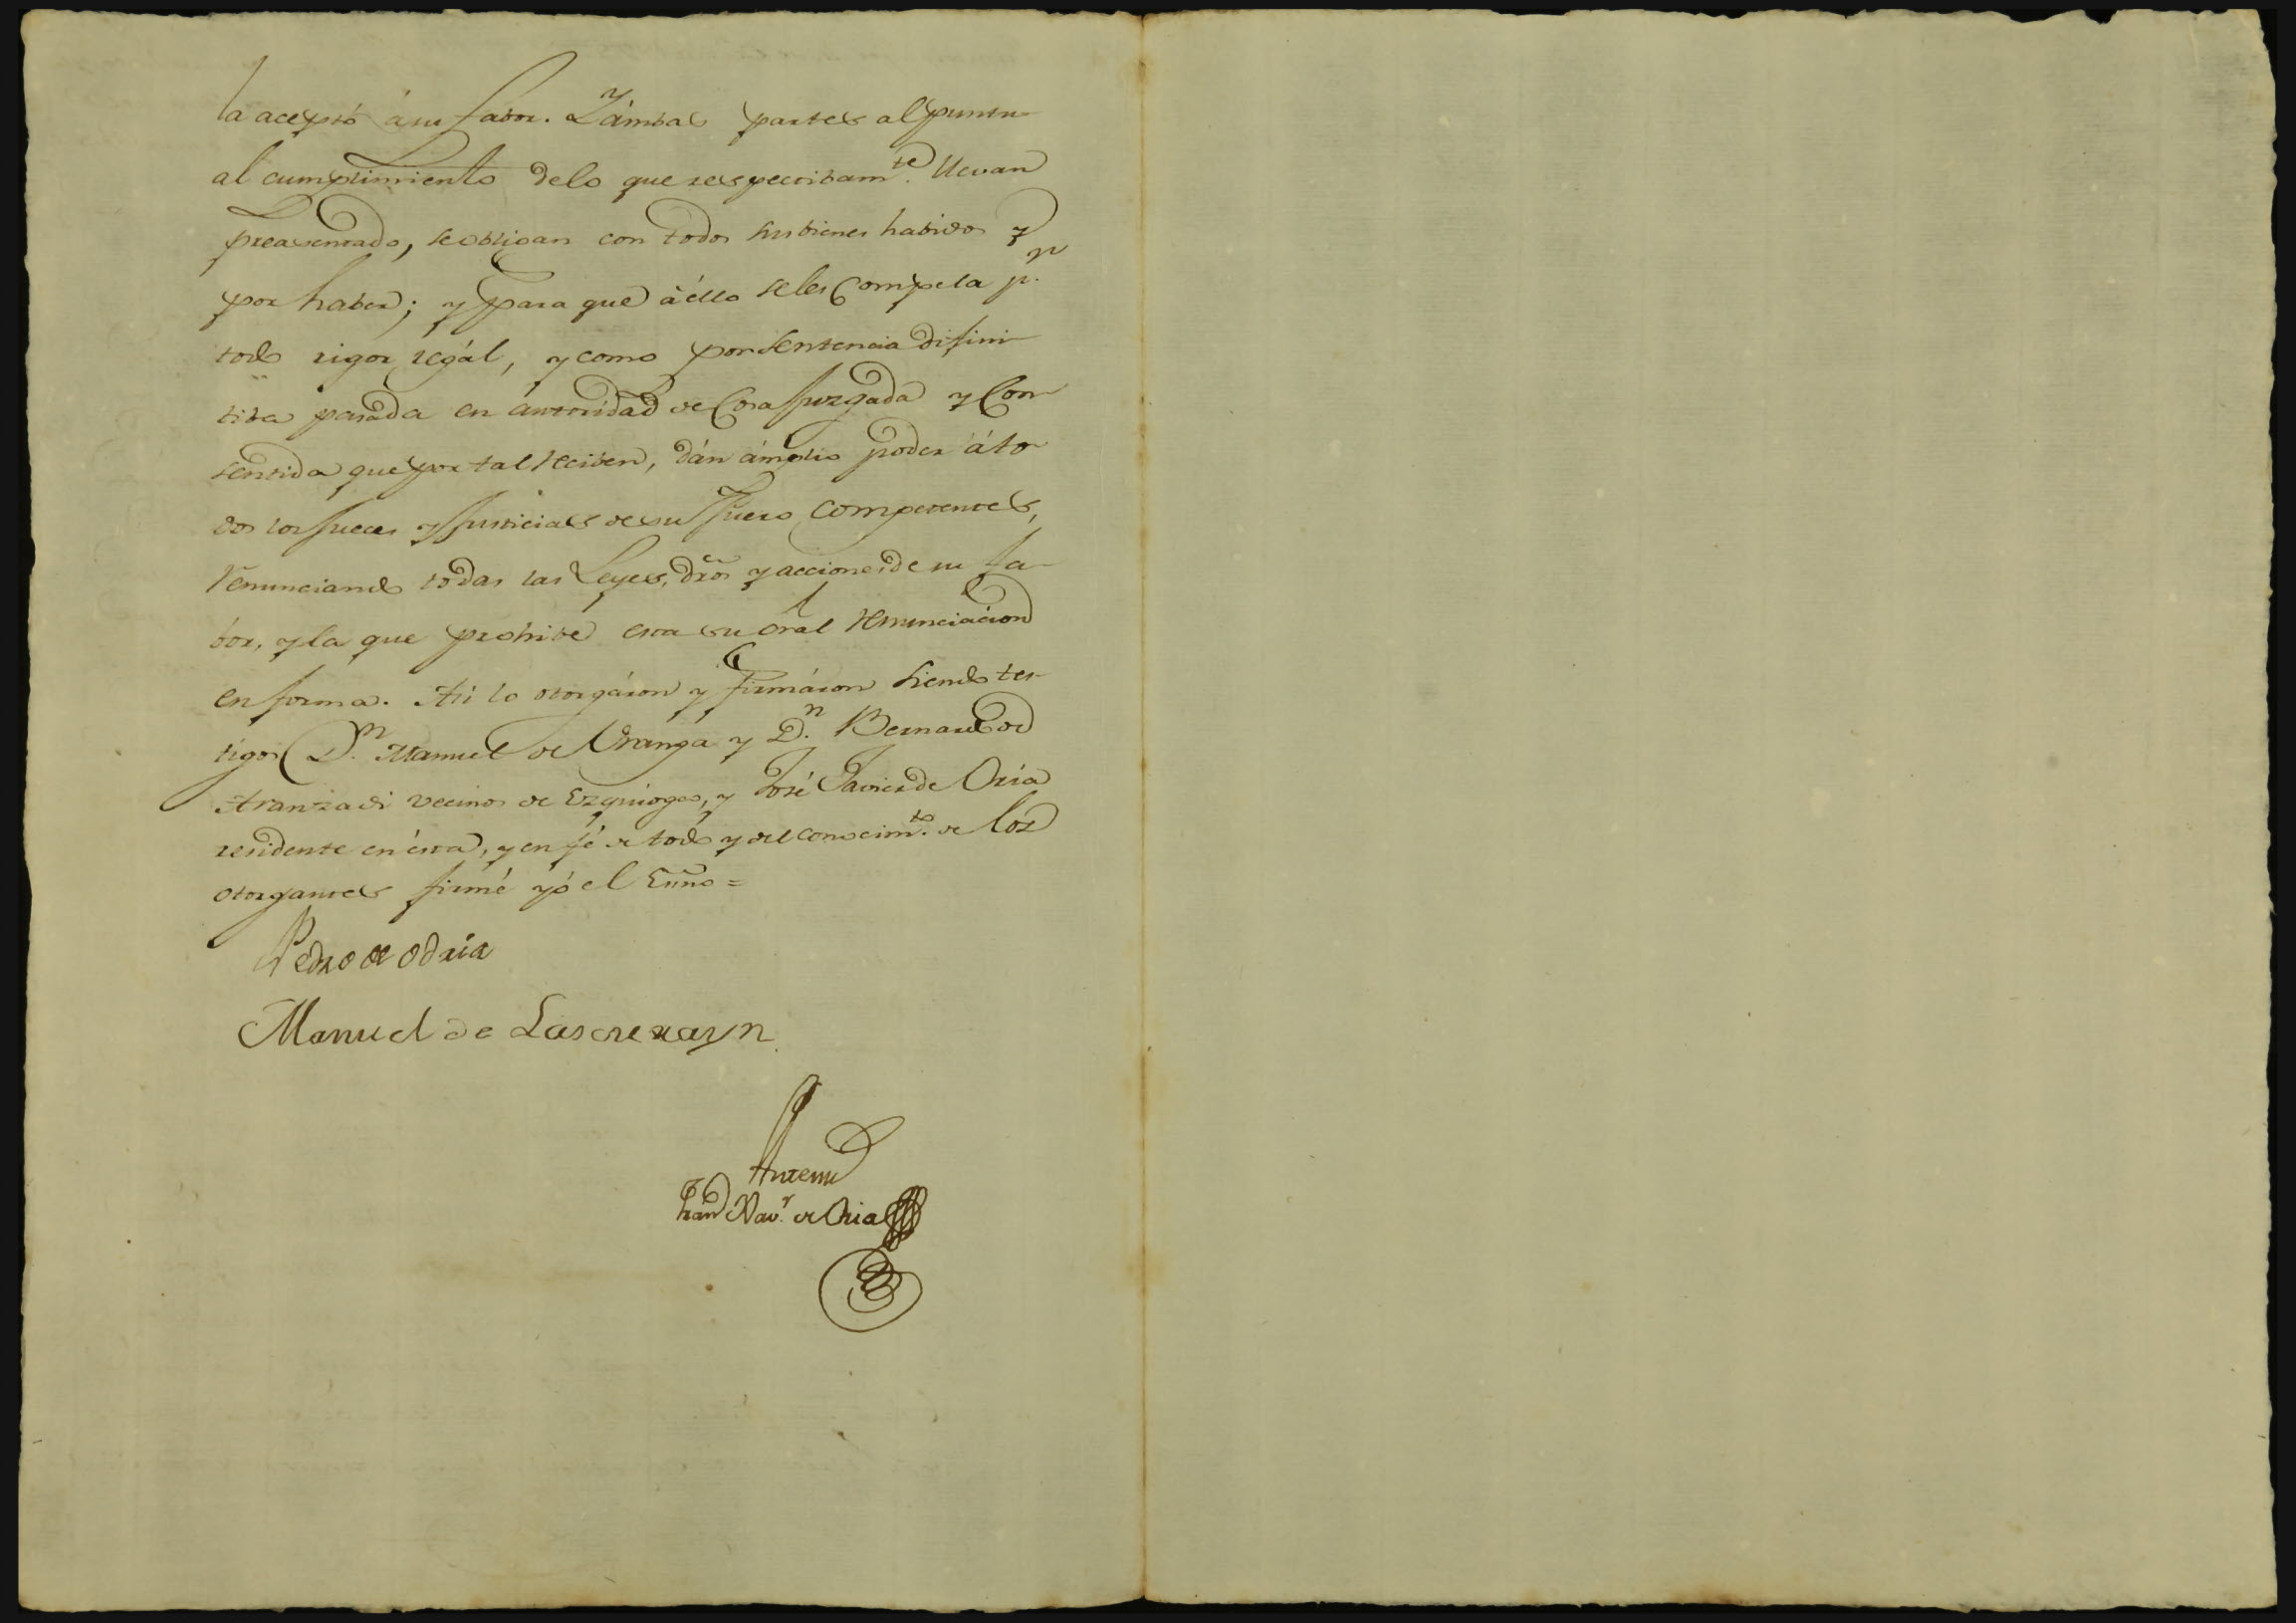 la aceptó á su fabor. Y ámbas partes al puntu-
al cumplimiento de lo que respectibam.te llevan
preasentado, se obligan con todos sus bienes habidos y
por haber; y para que á éllo se les compela p.r
todo rigor legál, y como por sentencia difini-
tiba pasada en autoridad de Cosa juzgada y Con-
sentida que por tal reciben, dán ámplio poder á to-
dos los jueces y justicias de su fuero competentes,
renunciando todas las Leyes, dros y acciones de su fa-
bor, y la que prohibe esta su gral renunciácion
en forma. Asi lo otorgáron y firmáron siendo tes-
tigos D.n Manuel de Uranga y D.n Bernardo de
Aranzadi vecinos de Ezquioga, y José Javier de Oria
residente en ésta, y en fé de todo y del conocim.to de los
otorgantes firmé yó el Esno =
Pedro de Odria
Manuel de
Antemi
Fran Xav.r de Oria